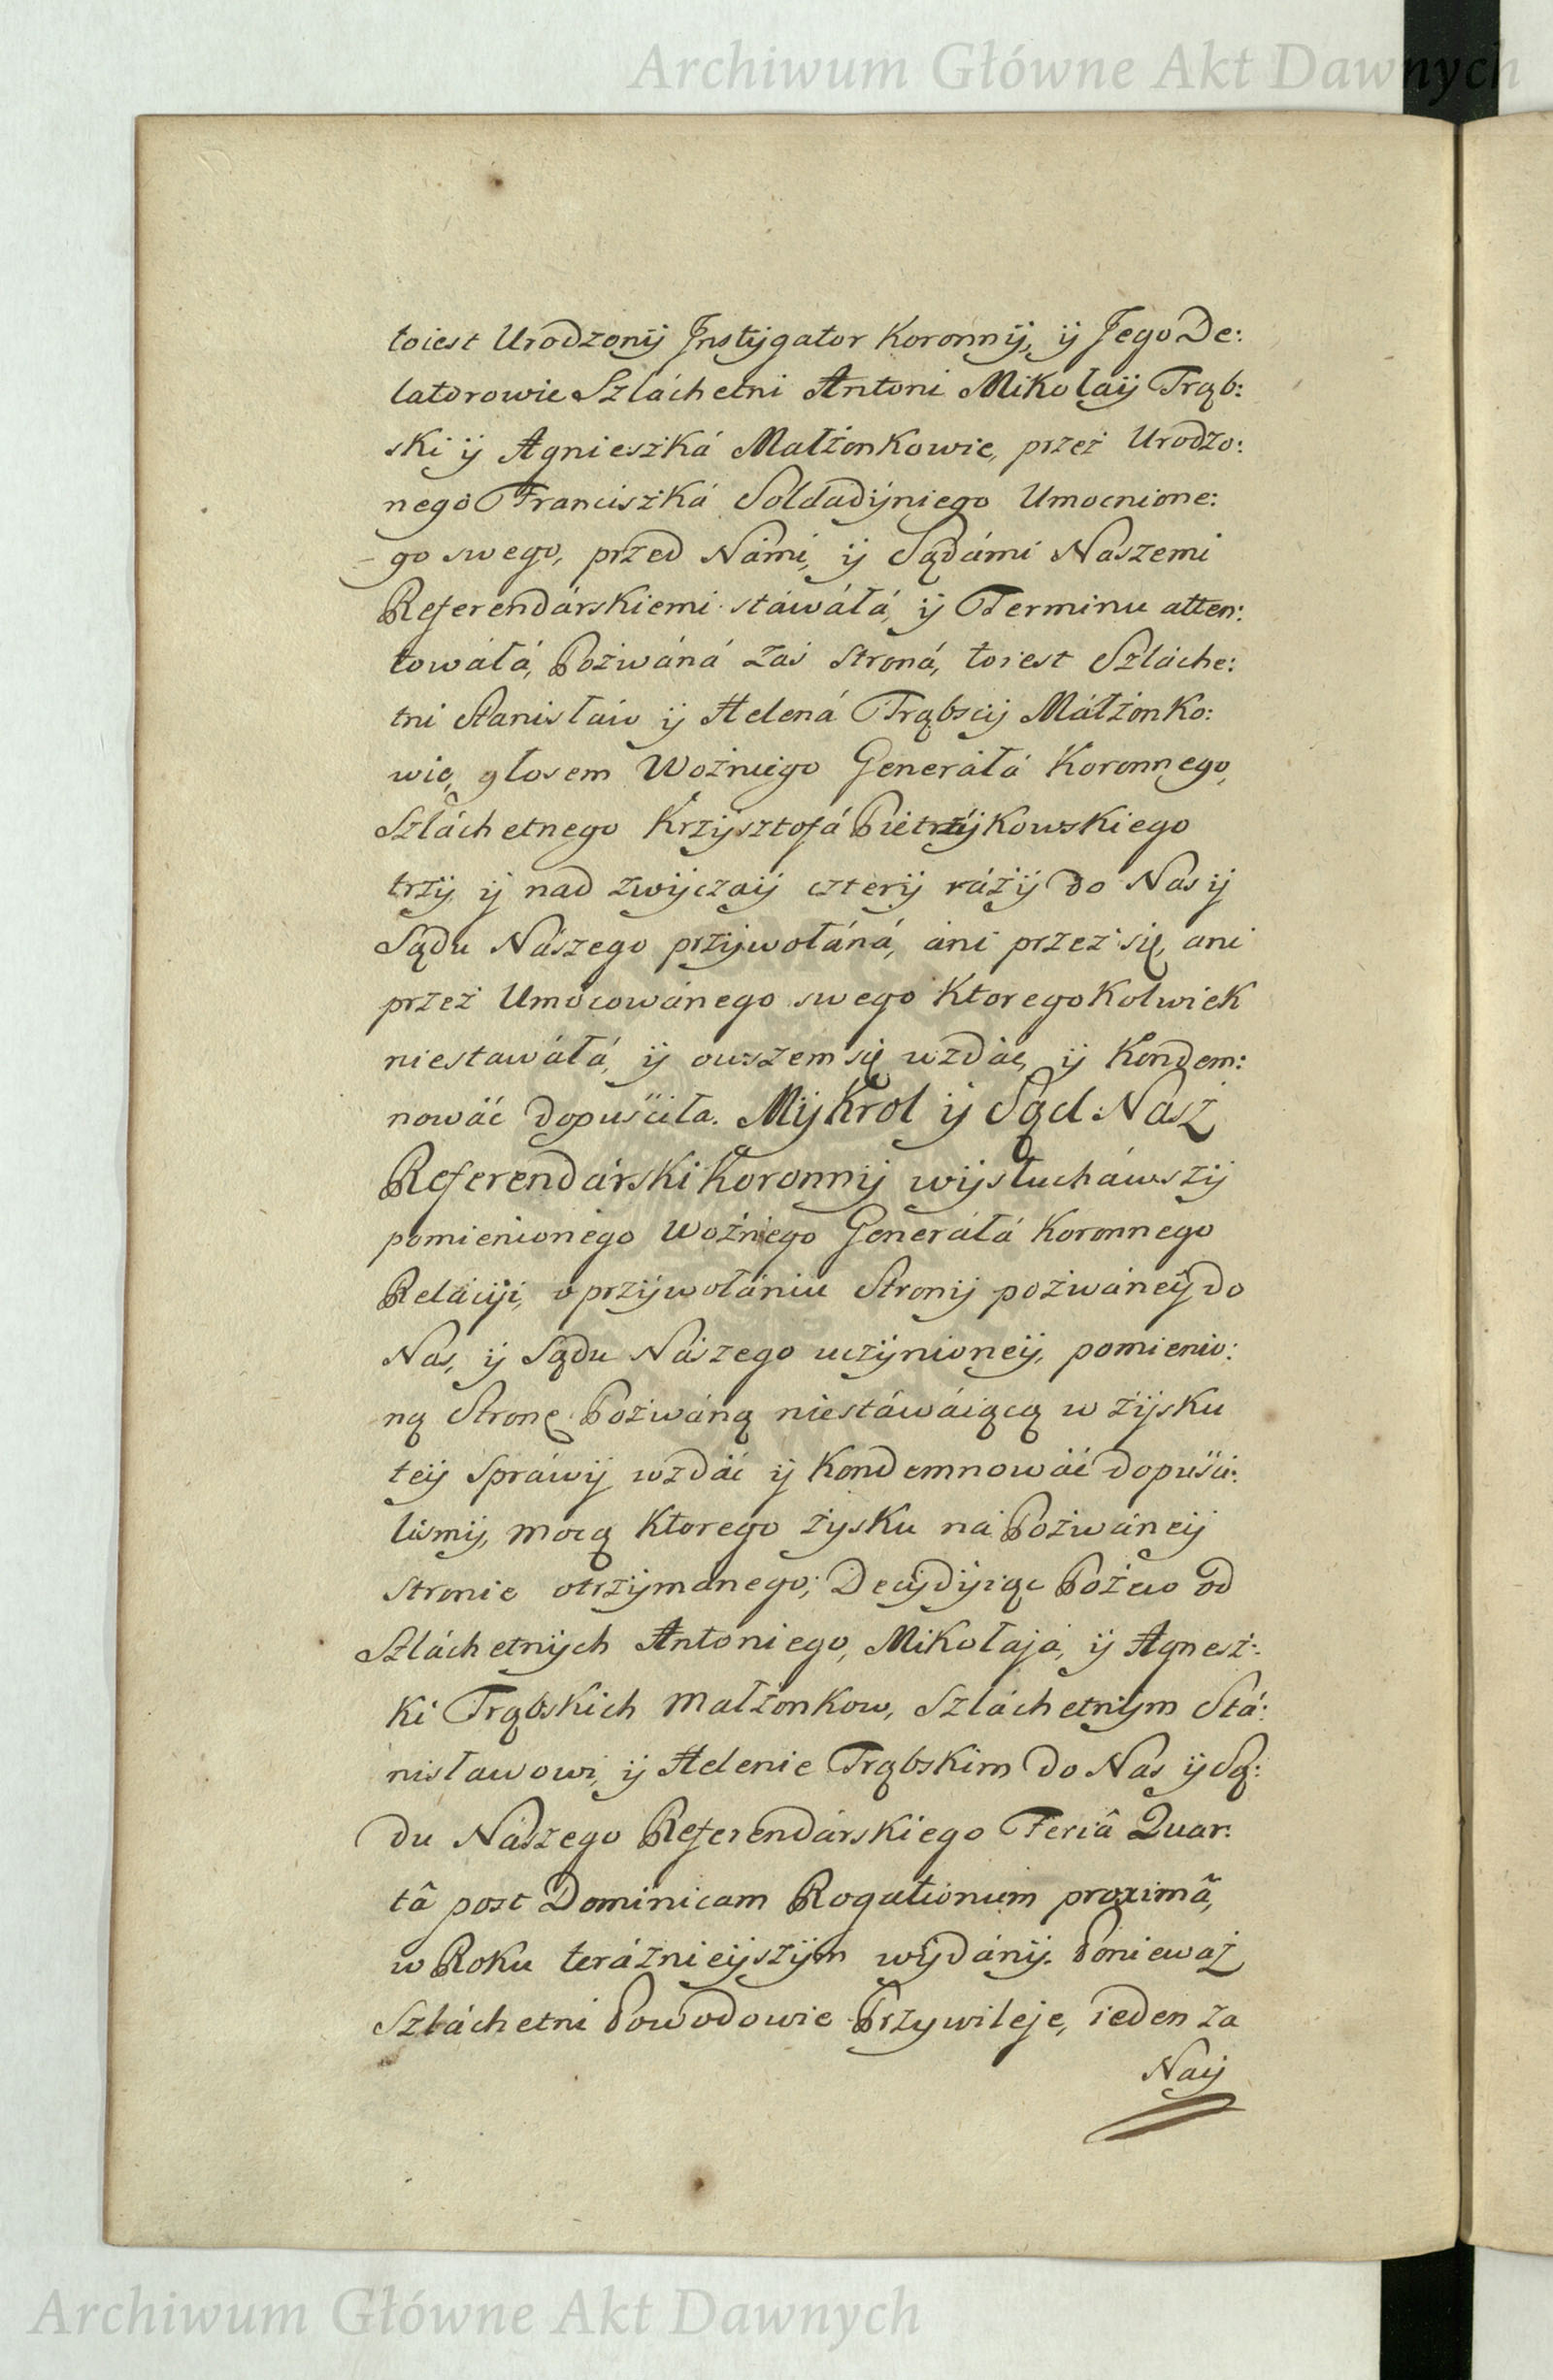 Archiwum Główne Akt Dawnych
toiest Urodzonÿ Jnstÿgator Koronnÿ, ÿ Jego De:
latorowie Szláchetni Antoni Mikołaÿ Trąb:
ski ÿ Agnieszká Małżonkowie, przez Urodzo:
nego Franciszká Soldadÿniego Umocnione:
go swego, przed Námi, ÿ Sądámi Naszemi
Referendárskiemi stáwáłá, ÿ Terminu atten:
towáłá, Pozwáná Zaś Stroná, toiest Szláche:
tni Stanisław ÿ Helená Trąbscÿ Máłżonko:
wie, głosem Woźniego Generáłá Koronnego,
Szláchetnego Krzÿsztofá Pietrzÿkowskiego
trzÿ ÿ nad zwÿczaÿ czterÿ rázÿ do Nas ÿ
Sądu Nászego przÿwołáná, áni przez się, ani
przez Umocowánego swego Ktoregokolwiek
niestawáłá, ÿ owszem się wzdáć, ÿ Kondem:
nowáć dopuściła. Mÿ Krol ÿ Sąd Nasz
Referendárski Koronnÿ wÿsłucháwszÿ
pomienionego Woźniego Generáłá Koronnego
Relácÿi, o przÿwołániu Stronÿ pozwáneÿ do
Nas, ÿ Sądu Nászego uczÿnioneÿ, pomienio:
ną Stronę Pozwáną niestáwáiącą w zÿsku
teÿ Spráwÿ wzdáć ÿ Kondemnowáć dopuści:
lismÿ, mocą Ktorego zysku na Pozwáneÿ
Stronie otrzÿmanego; Decÿdÿiąc Pozew od
Szláchetnÿch Antoniego, Mikołaja, ÿ Agniesz:
ki Trąbskich Małżonkow, Szláchetnÿm Stá:
nisławowi, ÿ Helenie Trąbskim do Nas ÿ Są:
du Nászego Referendárskiego Feriâ Quar:
tâ post Dominicam Rogationum proximâ,
w Roku teráznieÿszÿm wÿdánÿ. Poniewaz
Szláchetni Powodowie Przywileje, ieden za
Naÿ
Archiwum Główne Akt Dawnych